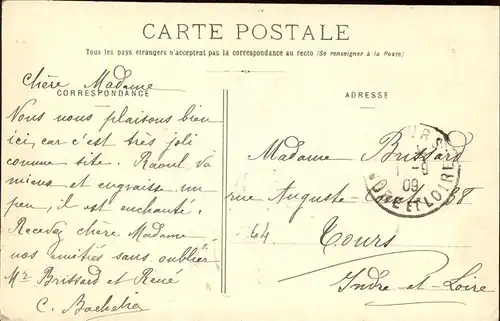 CARTE POSTALE
Tous les pays étrangers n'acceptent pas la correspondance au recto (Se renseigner à la Poste)
CORRESPONDANCE
ADRESSE
Chère Madame
Nous nous plaisons bien
ici, car c'est très joli
comme site. Raoul va
mieux et engraisse un
peu, il est enchanté.
Recevez chère Madame
nos amitiés sans oublier
Mr Brissard et René
C. Bachelier
Madame Brissard
rue Auguste 68
64
Tours
Indre-et-Loire
09
ET LOIRE